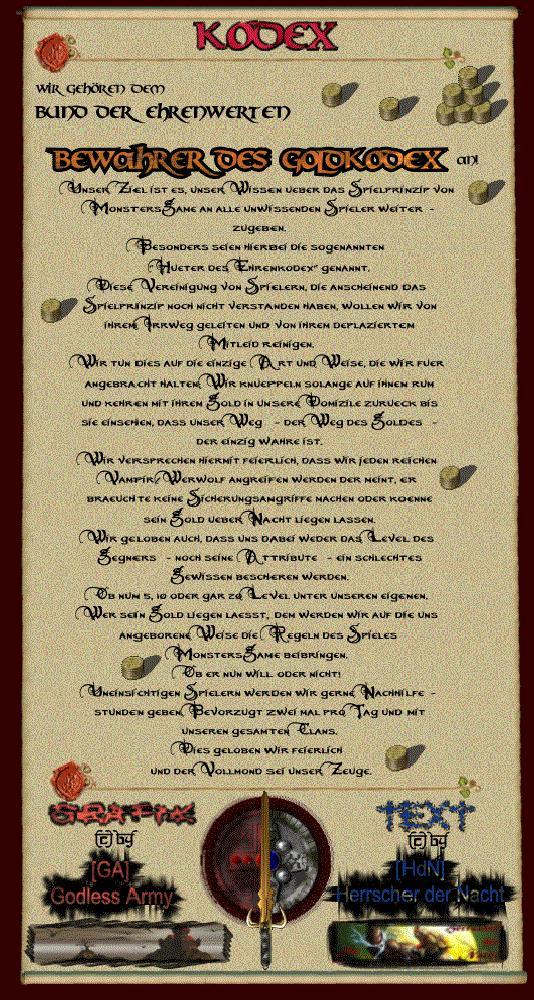 KODEX
Wir gehören dem
Bund der Ehrenwerten
Bewahrer des Goldkodex an!
Unser Ziel ist es, unser Wissen ueber das Spielprinzip von
MonstersGame an alle unwissenden Spieler weiter -
zugeben.
Besonders seien hierbei die sogenannten
"Hueter des Ehrenkodex" genannt.
Diese Vereinigung von Spielern, die anscheinend das
Spielprinzip noch nicht verstanden haben, wollen wir von
ihrem Irrweg geleiten und von ihrem deplaziertem
Mitleid reinigen.
Wir tun dies auf die einzige Art und Weise, die wir fuer
angebracht halten. Wir knueppeln solange auf ihnen rum
und kehren mit ihrem Gold in unsere Domizile zurueck bis
sie einsehen, dass unser Weg - der Weg des Goldes -
der einzig wahre ist.
Wir versprechen hiermit feierlich, dass wir jeden reichen
Vampir/Werwolf angreifen werden der meint, er
braeuchte keine Sicherungsangriffe machen oder koenne
sein Gold ueber Nacht liegen lassen.
Wir geloben auch, dass uns dabei weder das Level des
Gegners - noch seine Attribute - ein schlechtes
Gewissen bescheren werden.
Ob nun 5, 10 oder gar 20 Level unter unseren eigenen,
Wer sein Gold liegen laesst, dem werden wir auf die uns
angeborene Weise die Regeln des Spieles
MonstersGame beibringen.
Ob er nun will oder nicht!
Uneinsichtigen Spielern werden wir gerne Nachhilfe -
stunden geben, Bevorzugt zwei mal pro Tag und mit
unseren gesamten Clans.
Dies geloben wir feierlich
und der Vollmond sei unser Zeuge.
GRAFIK
(c) by
[GA]
Godless Army
TEXT
(c) by
[HdN]
Herrscher der Nacht